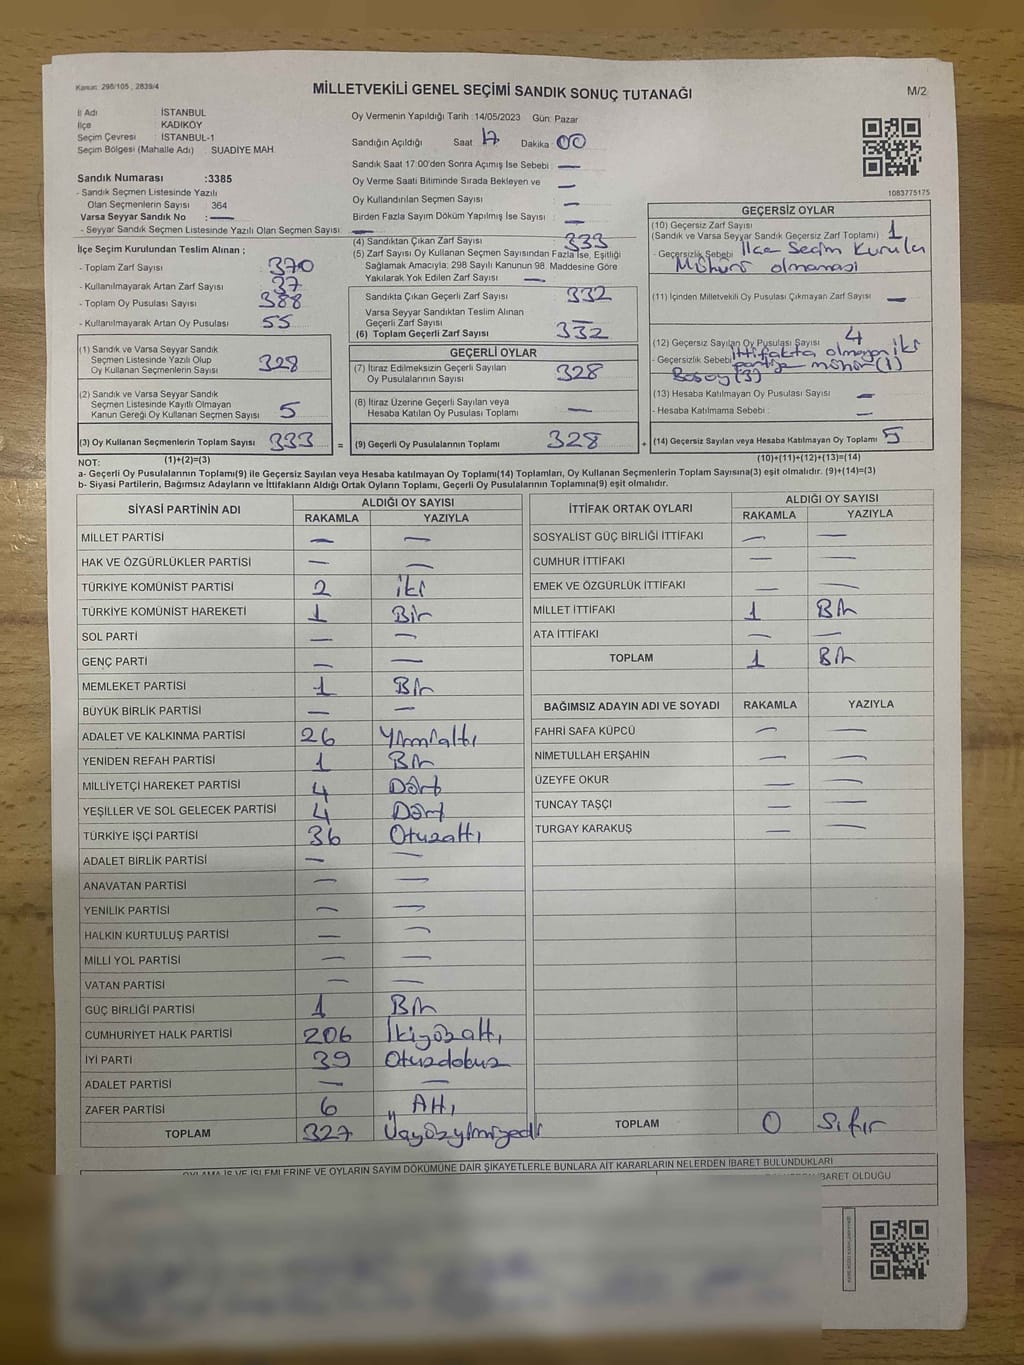 Kanun: 298/105 , 2839/4
MİLLETVEKİLİ GENEL SEÇİMİ SANDIK SONUÇ TUTANAĞI
M/2
İl Adı İSTANBUL
İlçe KADIKÖY
Seçim Çevresi İSTANBUL-1
Seçim Bölgesi (Mahalle Adı) : SUADİYE MAH.
Sandık Numarası :3385
- Sandık Seçmen Listesinde Yazılı
Olan Seçmenlerin Sayısı 364
Varsa Seyyar Sandık No : —
- Seyyar Sandık Seçmen Listesinde Yazılı Olan Seçmen Sayısı: —
Oy Vermenin Yapıldığı Tarih : 14/05/2023 Gün: Pazar
Sandığın Açıldığı Saat 17 Dakika 00
Sandık Saat 17:00'den Sonra Açımış İse Sebebi : —
Oy Verme Saati Bitiminde Sırada Bekleyen ve —
Oy Kullandırılan Seçmen Sayısı : —
Birden Fazla Sayım Döküm Yapılmış İse Sayısı : —
1083775175
İlçe Seçim Kurulundan Teslim Alınan ;
- Toplam Zarf Sayısı : 370
- Kullanılmayarak Artan Zarf Sayısı : 37
- Toplam Oy Pusulası Sayısı : 388
- Kullanılmayarak Artan Oy Pusulası : 55
(1) Sandık ve Varsa Seyyar Sandık
Seçmen Listesinde Yazılı Olup
Oy Kullanan Seçmenlerin Sayısı 328
(2) Sandık ve Varsa Seyyar Sandık
Seçmen Listesinde Kayıtlı Olmayan
Kanun Gereği Oy Kullanan Seçmen Sayısı 5
(3) Oy Kullanan Seçmenlerin Toplam Sayısı 333 =
(1)+(2)=(3)
(4) Sandıktan Çıkan Zarf Sayısı : 333
(5) Zarf Sayısı Oy Kullanan Seçmen Sayısından Fazla İse, Eşitliği
Sağlamak Amacıyla; 298 Sayılı Kanunun 98. Maddesine Göre
Yakılarak Yok Edilen Zarf Sayısı : —
Sandıkta Çıkan Geçerli Zarf Sayısı : 332
Varsa Seyyar Sandıktan Teslim Alınan
Geçerli Zarf Sayısı : —
(6) Toplam Geçerli Zarf Sayısı : 332
GEÇERLİ OYLAR
(7) İtiraz Edilmeksizin Geçerli Sayılan
Oy Pusulalarının Sayısı : 328
(8) İtiraz Üzerine Geçerli Sayılan veya
Hesaba Katılan Oy Pusulası Toplamı : —
(9) Geçerli Oy Pusulalarının Toplamı 328 +
GEÇERSİZ OYLAR
(10) Geçersiz Zarf Sayısı
(Sandık ve Varsa Seyyar Sandık Geçersiz Zarf Toplamı) : 1
- Geçersizlik Sebebi : İlçe Seçim Kurulu
Mührü olmaması
(11) İçinden Milletvekili Oy Pusulası Çıkmayan Zarf Sayısı : —
(12) Geçersiz Sayılan Oy Pusulası Sayısı : 4
- Geçersizlik Sebebi : İttifakta olmayan iki
partiye mühür (1)
Boş oy (3)
(13) Hesaba Katılmayan Oy Pusulası Sayısı : —
- Hesaba Katılmama Sebebi : —
(14) Geçersiz Sayılan veya Hesaba Katılmayan Oy Toplamı 5
(10)+(11)+(12)+(13)=(14)
NOT:
a- Geçerli Oy Pusulalarının Toplamı(9) ile Geçersiz Sayılan veya Hesaba katılmayan Oy Toplamı(14) Toplamları, Oy Kullanan Seçmenlerin Toplam Sayısına(3) eşit olmalıdır. (9)+(14)=(3)
b- Siyasi Partilerin, Bağımsız Adayların ve İttifakların Aldığı Ortak Oyların Toplamı, Geçerli Oy Pusulalarının Toplamına(9) eşit olmalıdır.
SİYASİ PARTİNİN ADI ALDIĞI OY SAYISI
RAKAMLA YAZIYLA
MİLLET PARTİSİ — —
HAK VE ÖZGÜRLÜKLER PARTİSİ — —
TÜRKİYE KOMÜNİST PARTİSİ 2 iki
TÜRKİYE KOMÜNİST HAREKETİ 1 Bir
SOL PARTİ — —
GENÇ PARTİ — —
MEMLEKET PARTİSİ 1 Bir
BÜYÜK BİRLİK PARTİSİ — —
ADALET VE KALKINMA PARTİSİ 26 Yirmialtı
YENİDEN REFAH PARTİSİ 1 Bir
MİLLİYETÇİ HAREKET PARTİSİ 4 Dört
YEŞİLLER VE SOL GELECEK PARTİSİ 4 Dört
TÜRKİYE İŞÇİ PARTİSİ 36 Otuzaltı
ADALET BİRLİK PARTİSİ — —
ANAVATAN PARTİSİ — —
YENİLİK PARTİSİ — —
HALKIN KURTULUŞ PARTİSİ — —
MİLLİ YOL PARTİSİ — —
VATAN PARTİSİ — —
GÜÇ BİRLİĞİ PARTİSİ 1 Bir
CUMHURİYET HALK PARTİSİ 206 İkiyüzaltı
İYİ PARTİ 39 Otuzdokuz
ADALET PARTİSİ — —
ZAFER PARTİSİ 6 Altı
TOPLAM 327 Üçyüzyirmiyedi
İTTİFAK ORTAK OYLARI ALDIĞI OY SAYISI
RAKAMLA YAZIYLA
SOSYALİST GÜÇ BİRLİĞİ İTTİFAKI — —
CUMHUR İTTİFAKI — —
EMEK VE ÖZGÜRLÜK İTTİFAKI — —
MİLLET İTTİFAKI 1 Bir
ATA İTTİFAKI — —
TOPLAM 1 Bir
BAĞIMSIZ ADAYIN ADI VE SOYADI RAKAMLA YAZIYLA
FAHRİ SAFA KÜPCÜ — —
NİMETULLAH ERŞAHİN — —
ÜZEYFE OKUR — —
TUNCAY TAŞÇI — —
TURGAY KARAKUŞ — —
TOPLAM 0 Sıfır
OYLAMA İŞ VE İŞLEMLERİNE VE OYLARIN SAYIM DÖKÜMÜNE DAİR ŞİKAYETLERLE BUNLARA AİT KARARLARIN NELERDEN İBARET BULUNDUKLARI
İBARET OLDUĞU